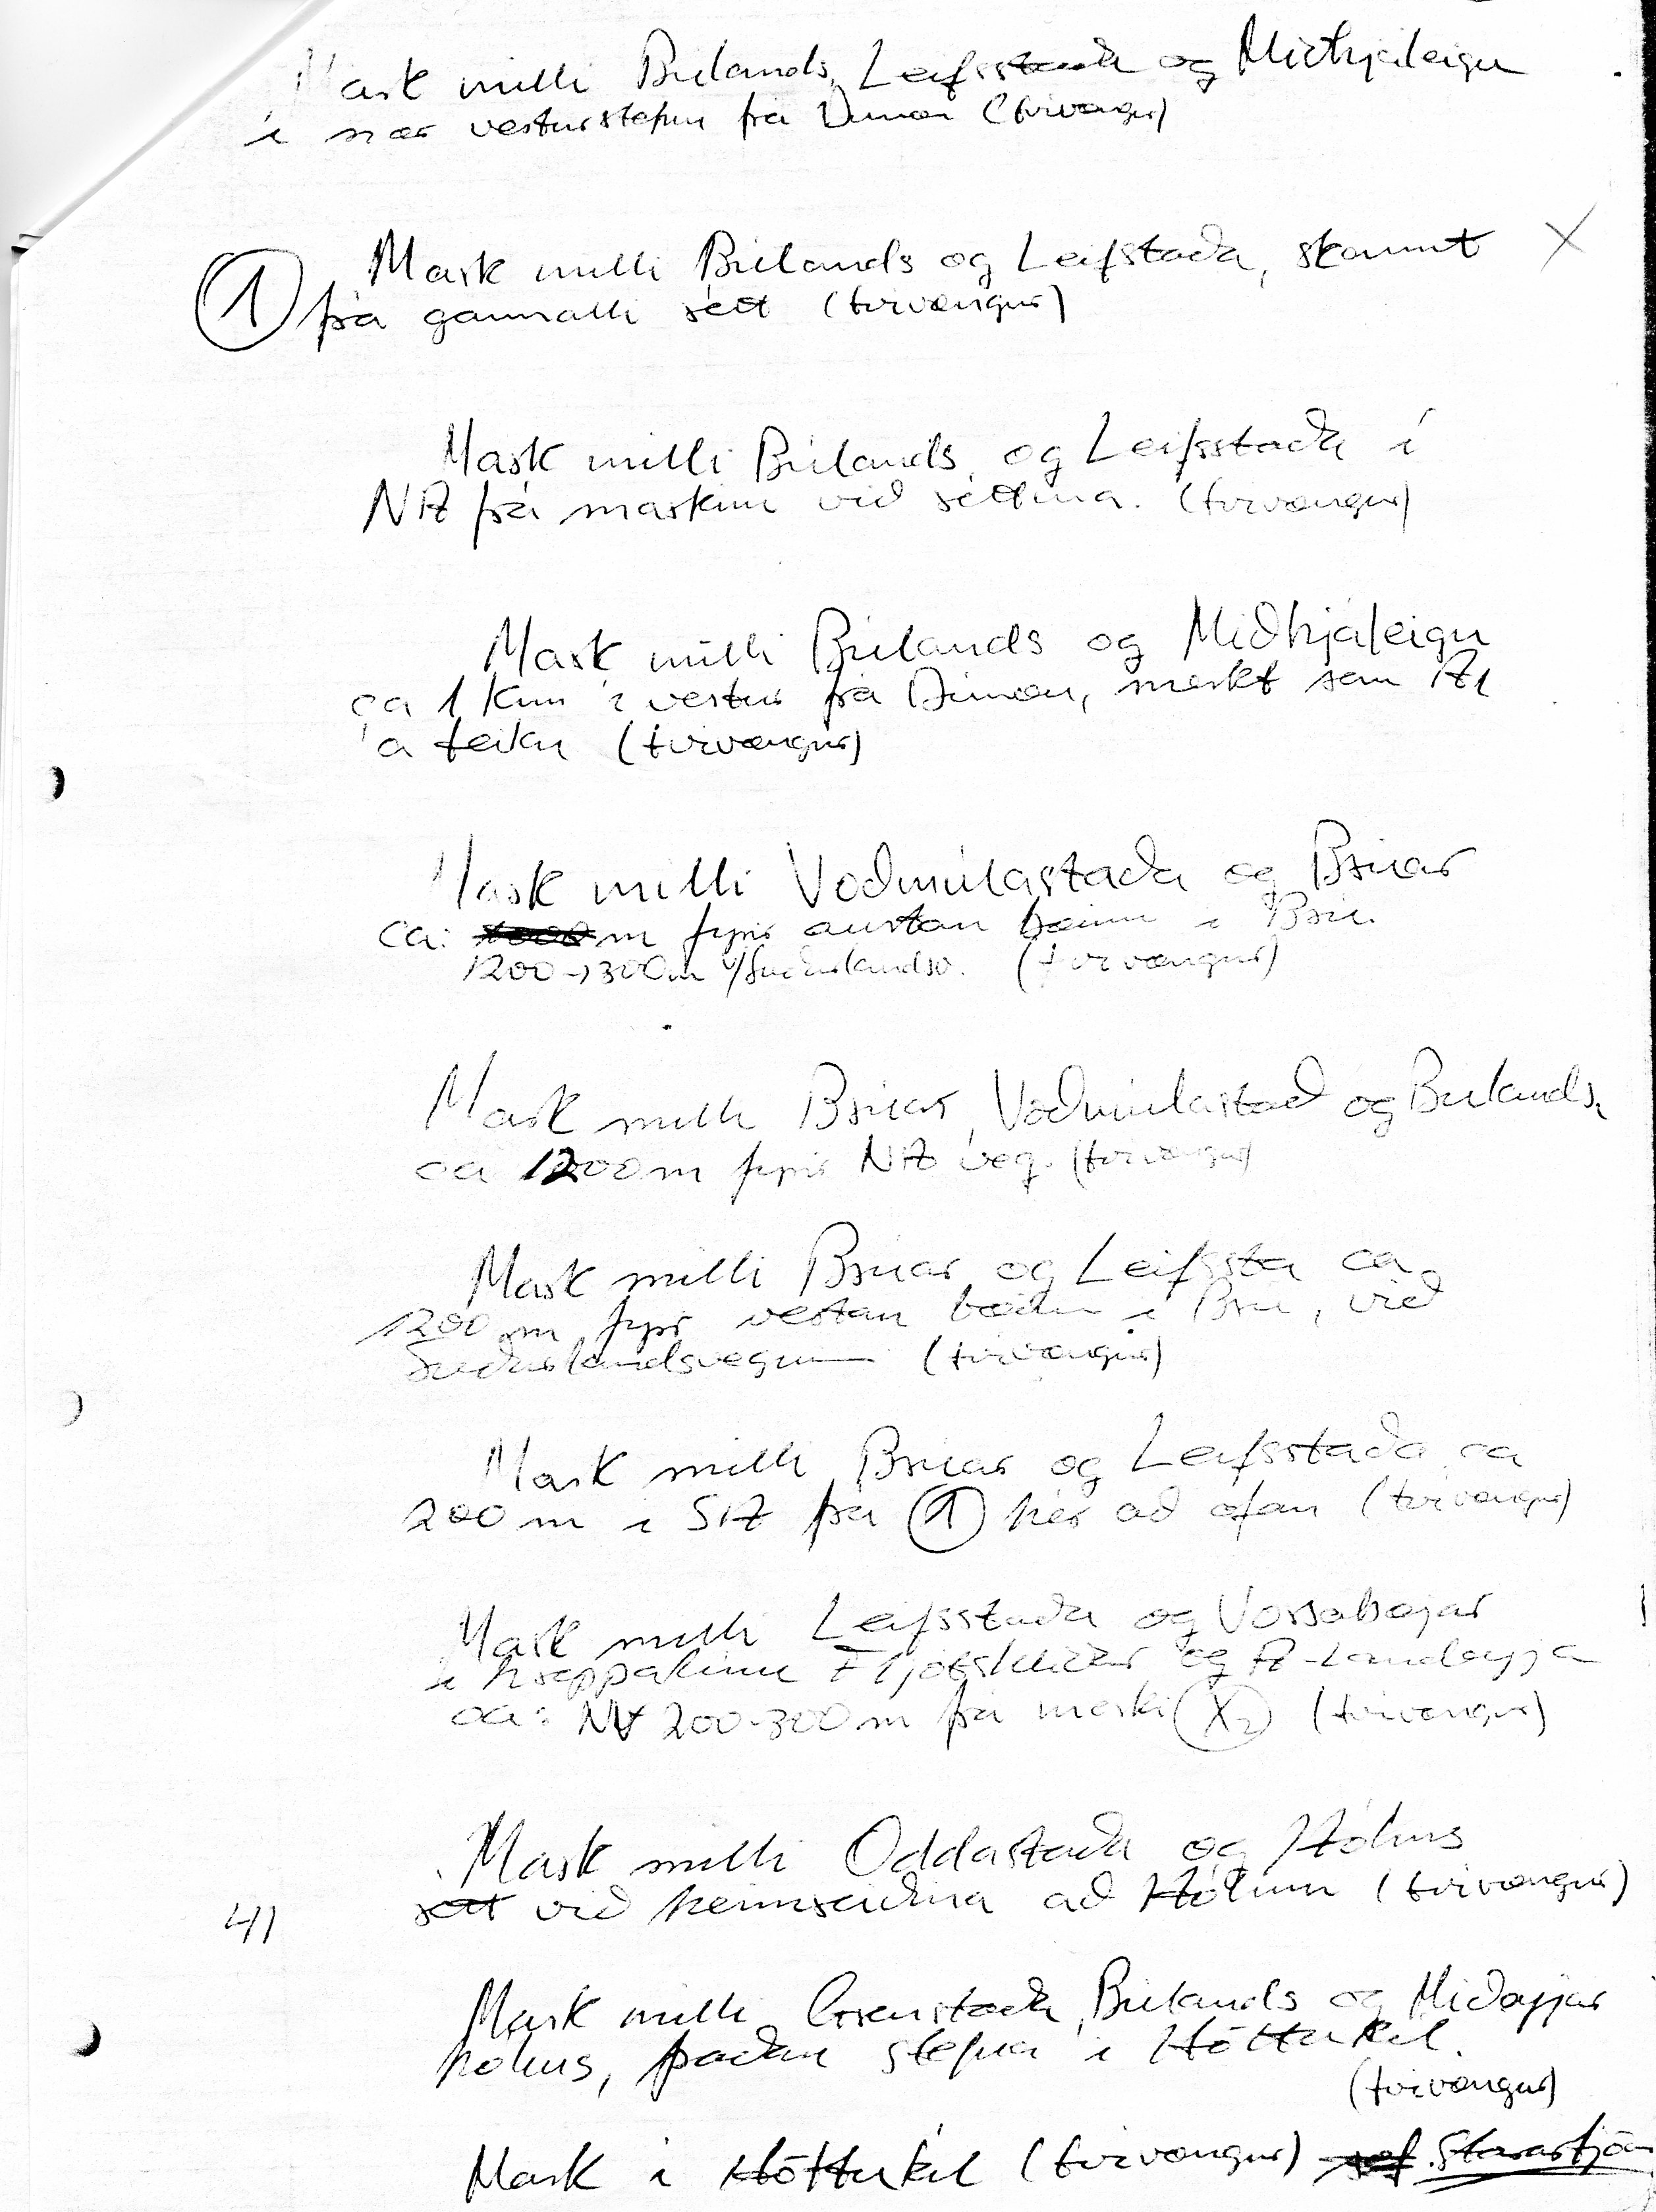 Mark milli Búlands, Leifsstaða og Miðhjáleigu
í nær vesturstefnu frá Dímon (tvívængur)
① Mark milli Búlands og Leifstaða, skammt X
frá gamalli rétt (tvívængur)
Mark milli Búlands og Leifsstaða í
NA frá markinu við réttina. (tvívængur)
Mark milli Búlands og Miðhjáleigu
ca 1 km í vestur frá Dímon, merkt sem A1
á teikn (tvívængur)
Mark milli Voðmúlastaða og Brúar
ca: m fyrir austan bæinn í Brú.
1200-1300m v/Suðurlandsv. (tvívængur)
Mark milli Brúar, Voðmúlastað og Búlands,
ca 1200m fyrir NA veg. (tvívængur)
Mark milli Brúar og Leifssta ca
1200 m fyrir vestan bæinn í Brú, við
Suðurlandsveginn (tvívængur)
Mark milli Brúar og Leifsstaða ca
200 m í SA frá ① hér að ofan (tvívængur)
Mark milli Leifsstaða og Vorsabæjar
í hreppalínu Fljótshlíðar og A-Landeyja
ca: NV 200-300m frá marki X2 (tvívængur)
Mark milli Oddastaða og Hólms
rétt við heimreiðina að Hólmi (tvívængur)
41
Mark milli Grenstaða, Búlands og Miðeyjar
hólms, þaðan stefna í Höttukíl.
(tvívængur)
Mark í Höttukíl (tvívængur)